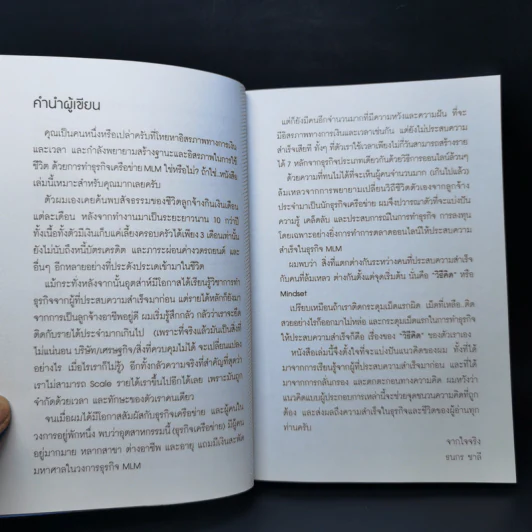 คำนำผู้เขียน
คุณเป็นคนหนึ่งหรือเปล่าครับที่ใฝ่หาอิสรภาพทางการเงิน
และเวลา และกำลังพยายามสร้างฐานะและอิสรภาพในการใช้
ชีวิต ด้วยการทำธุรกิจเครือข่าย MLM ใช่หรือไม่? ถ้าใช่..หนังสือ
เล่มนี้เหมาะสำหรับคุณมากเลยครับ
ตัวผมเองเคยค้นพบสัจธรรมของชีวิตลูกจ้างกินเงินเดือน
แต่ละเดือน หลังจากทำงานมาเป็นระยะยาวนาน 10 กว่าปี
ทั้งเนื้อทั้งตัวมีเงินเก็บแค่เลี้ยงครอบครัวได้เพียง 3 เดือนเท่านั้น
ยังไม่นับถึงหนี้บัตรเครดิต และภาระผ่อนค่างวดรถยนต์ และ
อื่นๆ อีกหลายอย่างที่ประดังประเดเข้ามาในชีวิต
แม้กระทั่งหลังจากนั้นอุตส่าห์มีโอกาสได้เรียนรู้วิชาการทำ
ธุรกิจจากผู้ที่ประสบความสำเร็จมาก่อน แต่รายได้หลักก็ยังมา
จากการเป็นลูกจ้างอาชีพอยู่ดี ผมเริ่มรู้สึกกลัว กลัวว่าเราจะยึด
ติดกับรายได้ประจำมากเกินไป (เพราะที่จริงแล้วมันเป็นสิ่งที่
ไม่แน่นอน บริษัท/เศรษฐกิจ/สิ่งที่ควบคุมไม่ได้ จะเปลี่ยนแปลง
อย่างไร เมื่อไรเราก็ไม่รู้) อีกทั้งกลัวความจริงที่สำคัญที่สุดว่า
เราไม่สามารถ Scale รายได้เราขึ้นไปอีกได้เลย เพราะมันถูก
จำกัดด้วยเวลา และทักษะของตัวเราคนเดียว
จนเมื่อผมได้มีโอกาสสัมผัสกับธุรกิจเครือข่าย และผู้คนใน
วงการอยู่พักหนึ่ง พบว่าอุตสาหกรรมนี้ (ธุรกิจเครือข่าย) มีผู้คน
อยู่มากมาย หลากสาขา ต่างอาชีพ และอายุ แถมมีเงินสะพัด
มหาศาลในวงการธุรกิจ MLM
แต่ก็ยังมีคนอีกจำนวนมากที่มีความหวังและความฝัน ที่จะ
มีอิสรภาพทางการเงินและเวลาเช่นกัน แต่ยังไม่ประสบความ
สำเร็จเสียที ทั้งๆ ที่ตัวเราใช้เวลาเพียงไม่กี่วันสามารถสร้างราย
ได้ 7 หลักจากธุรกิจประเภทเดียวกันด้วยวิธีการออนไลน์ล้วนๆ
ด้วยความที่ทนไม่ได้ที่จะเห็นผู้คนจำนวนมาก ถกันไปแล้ว
ล้มเหลวจากการพยายามเปลี่ยนวิถีชีวิตตัวเองจากลูกจ้าง
ประจำมาเป็นนักธุรกิจเครือข่าย ผมจึงปวารณาตัวที่จะแบ่งปัน
ความรู้ เคล็ดลับ และประสบการณ์ในการทำธุรกิจ การลงทุน
โดยเฉพาะอย่างยิ่งการทำการตลาดออนไลน์ให้ประสบความ
สำเร็จในธุรกิจ MLM
ผมพบว่า สิ่งที่แตกต่างกันระหว่างคนที่ประสบความสำเร็จ
กับคนที่ล้มเหลว ต่างกันตั้งแต่จุดเริ่มต้น นั่นคือ "วิธีคิด" หรือ
Mindset
เปรียบเหมือนถ้าเราติดกระดุมเม็ดแรกผิด เม็ดที่เหลือ..ติด
สวยอย่างไรก็ออกมาไม่หล่อ และกระดุมเม็ดแรกในการทำธุรกิจ
ให้ประสบความสำเร็จก็คือ เรื่องของ "วิธีคิด" ของตัวเราเอง
หนังสือเล่มนี้จึงตั้งใจที่จะแบ่งปันแนวคิดของผม ทั้งที่ได้
มาจากการเรียนรู้จากผู้ที่ประสบความสำเร็จมาก่อน และที่ได้
มาจากการกลั่นกรอง และตกตะกอนทางความคิด ผมหวังว่า
แนวคิดแบบผู้ประกอบการเหล่านี้จะช่วยจุดชนวนความคิดที่ถูก
ต้อง และส่งผลถึงความสำเร็จในธุรกิจและชีวิตของผู้อ่านทุก
ท่านครับ
จากใจจริง
ธนกร ชาลี